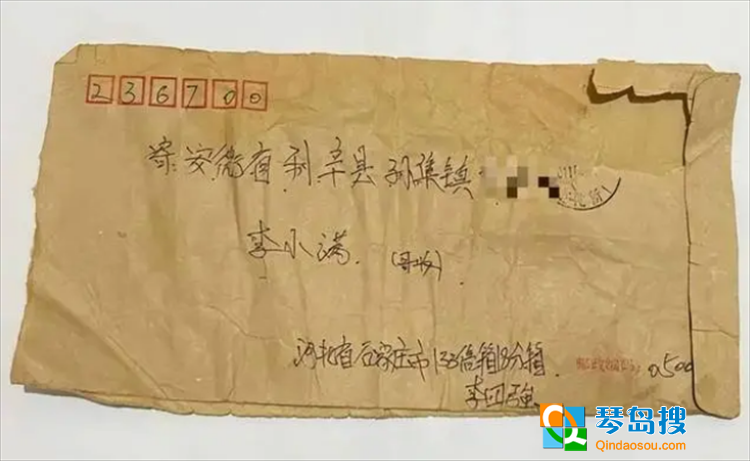 236700
寄安徽省利辛县孙集镇
李小满 (哥收)
河北省石家庄市133信箱18分箱
0500
李四强
琴岛搜
Qindaosou.com